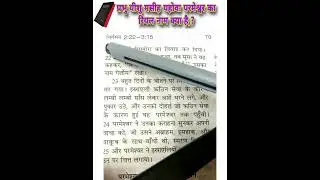 प्रभु यीशु मसीह यहोवा परमेश्वर का
रियल नाम क्या है ?
निर्गमन 2:22—3:15 70
22
कहकर,
नाम गेर्शोम रखा।
23 बहुत दिनों के बीतने पर मिस्र
गया। इस्राएली कठिन सेवा के
लम्बी लम्बी साँस लेकर आहें भरने लगे, और
पुकार उठे, और उनकी दोहाई जो कठिन सेवा
के कारण हुई वह परमेश्वर तक पहुँची।
24 परमेश्वर ने उनका कराहना सुनकर अपनी
वाचा को, जो उसने अब्राहम, इसहाक, और
याकूब के साथ बाँधी थी, स्मरण
25 और परमेश्वर ने इस्राएलियों
पर चित्त लगाया।